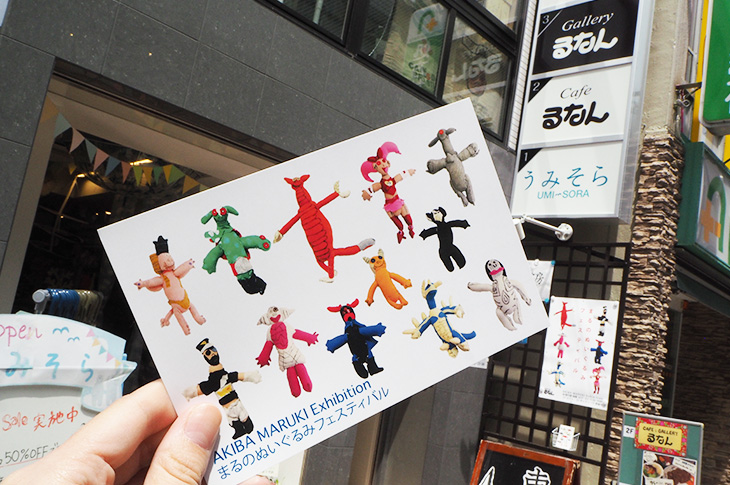 3
Gallery
るなん
2
Cafe
るなん
1
うみそら
UMI-SORA
AKIBA MARUKI Exhibition
まるのぬいぐるみフェスティバル
open
みそら
Sale 実施中
50%OFF
2F
CAFE & GALLERY
るなん